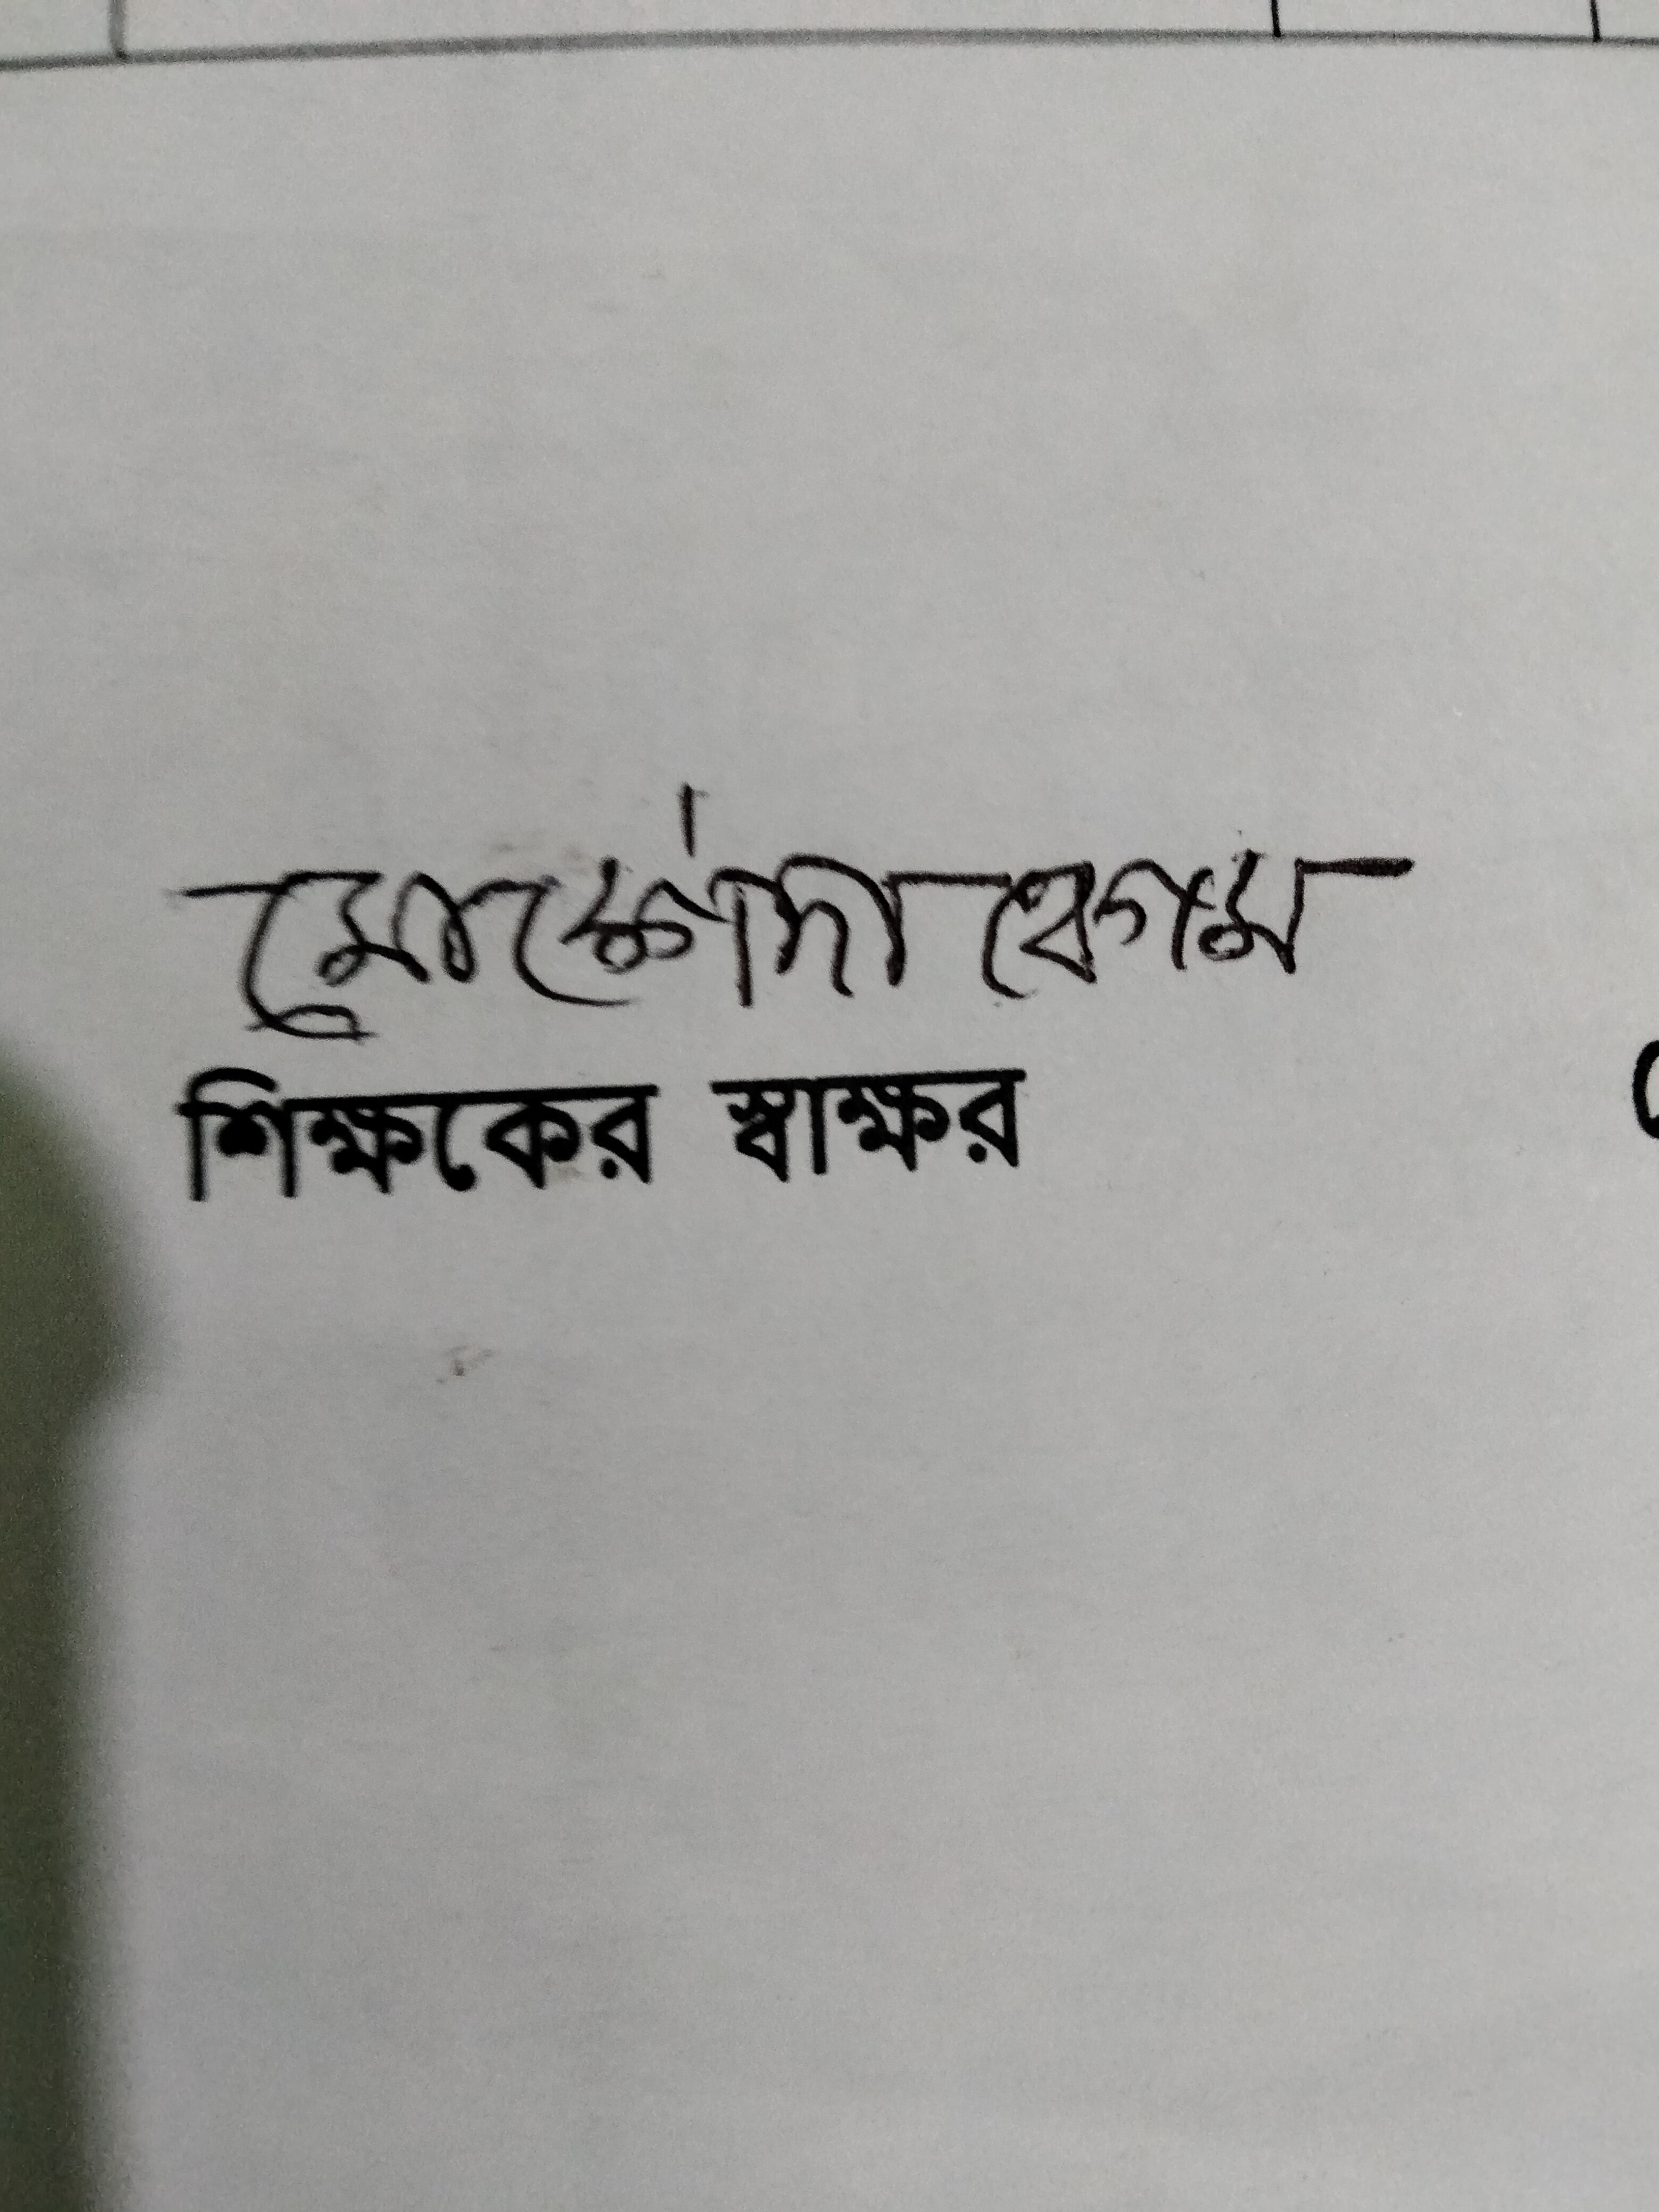 মোর্শেদা বেগম
শিক্ষকের স্বাক্ষর